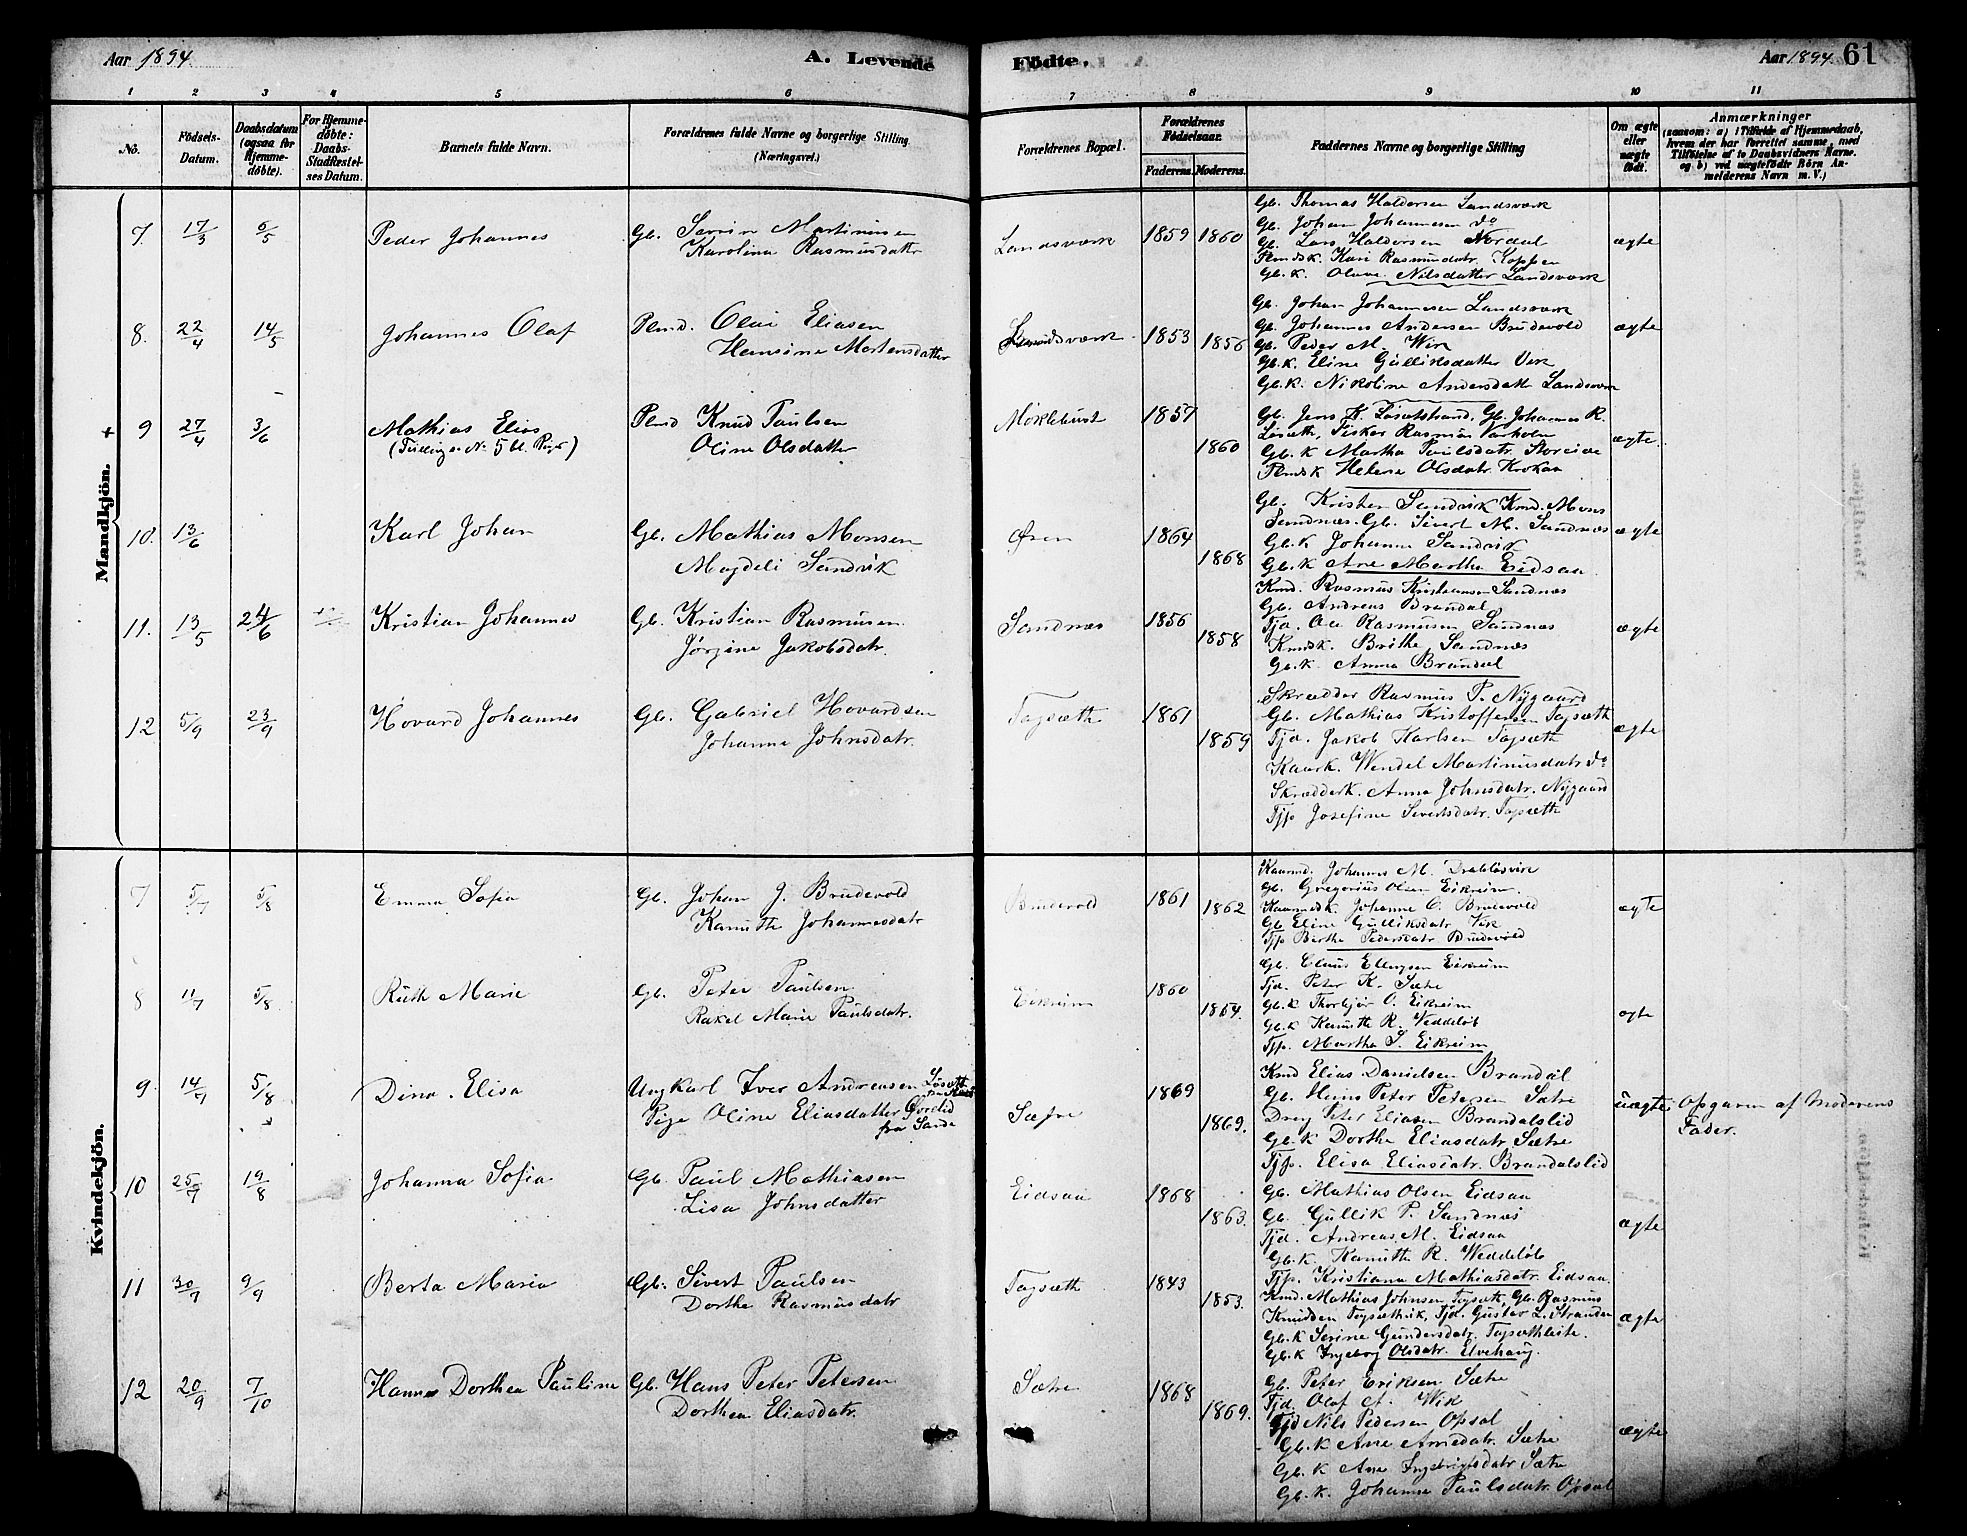 Aar 1894. A. Levende Födte. Aar 1894. 61
1 2 3 4 5 6 7 8 9 10 11
No.
Födsels-Datum.
Daabsdatum (ogsaa for Hjemmedöbte).
For Hjemmedöbte: Daabs-Stadfæstelses Datum.
Barnets fulde Navn.
Forældrenes fulde Navne og borgerlige Stilling.
(Næringsvei.)
Forældrenes Bopæl.
Forældrenes Födselsaar.
Faderens. Moderens.
Faddernes Navne og borgerlige Stilling
Om ægte eller uægte født.
Anmærkninger
(saasom: a) i Tilfælde af Hjemmedaab,
hvem der har forrettet samme, med
Tilføielse af to Daabsvidners Navne.
og b) ved uægtefödte Börn Anmelderens Navn m. V.)
Mandkjön.
7. 17/3 6/5 Peder Johannes
Gb. Severin Martinusen
Karolina Rasmusdatter
Landsværk 1859 1860
Gb. Thomas Haldorsen Landsværk
Gb. Johan Johannesen do
Gb. Lars Haldorsen Nordal
Plmdsk. Kari Rasmusdatr. Koppen
Gb.k. Olave Nilsdatter Landsværk
ægte
8. 22/4 14/5 Johannes Olaf
Plmd. Olai Eliasen
Hansine Mortensdatter
Landsværk 1853 1856
Gb. Johan Johannesen Landsværk
Gb. Johannes Andersen Brudevold
Gb. Peder M. Wik
Gb.k. Eline Gulliksdatter Vik
Gb.k. Nikoline Andersdatter Landsværk
ægte
+ 9 27/4 3/6 Mathias Elias
(Tvilling No 5 bl. Piger)
Plmd Knud Paulsen
Oline Olsdatter
Møklebust 1857 1860
Gb. Jens K. Løsetstrand, Gb. Johannes R.
Løseth, Fisker Rasmus Varholm
Gb.k Martha Paulsdatr. Storeide
Plmdsk Helene Olsdatr. Krokaa
ægte.
10. 13/6 Karl Johan
Gb. Mathias Monsen
Magdeli Sandvik
Øren 1864 1868
Gb. Kristen Sandvik Kmd. Mons
Sandnæs. Gb. Sivert M. Sandnæs
Gb.k Johanne Sandvik
Gb.k Ane Martha Eidsaa
ægte
11. 13/5 24/6 Kristian Johannes
Gb. Kristian Rasmusen
Jørgine Jakobsdatr.
Sandnæs 1856 1858
Kmd. Rasmus Kristiansen Sandnæs
Gb. Andreas Brandal
Tjd. Ole Rasmusen Sandnæs
Kmdsk. Brithe Sandnæs
Gb.k. Anna Brandal
ægte
12 5/9 23/9 Hovard Johannes
Gb. Gabriel Hovardsen
Johanne Johnsdatr.
Tagsæth 1861 1859
Skrædder Rasmus P. Nygaard
Gb. Mathias Kristoffersen Tagsæth
Tjd. Jakob Karlsen Tagsæth
Kaark. Wendel Martinusdatr do
Skrædderk. Anna Johnsdatr. Nygaard
Tjp Josefine Sivertsdatr. Tagsæth
ægte
Kvindekjön.
7 5/7 5/8 Emma Sofia
Gb. Johan J. Brudevold
Kanutte Johannesdatr
Brudevold 1861 1862
Kaarmd. Johannes M. Drabløsvik
Gb. Gregorius Olsen Eikreim.
Kaarmdsk. Johanne O. Brudevold
Gb Eline Gulliksdatr Vik
Tjp. Berthe Pedersdatr Brudevold
ægte
8 11/7 5/8 Ruth Marie
Gb. Peter Paulsen
Rakel Marie Paulsdatr.
Eikreim 1860 1864.
Gb. Claus Ellingsen Eikreim
Tjd. Peter K. Sætre
Gb.k Thorbjør O. Eikreim
Gb.k Kanutte R. Weddeløb
Tjp. Martha S. Eikreim
ægte
9. 14/7 5/8 Dina Elisa
Ungkarl Iver Andreasen Løset
Pige Oline Eliasdatter Overlid
fra Sande
Sætre 1869 1869.
Kmd Elias Danielsen Brandal
Gb. Hans Peter Petersen Sætre
Dreng Peter Eliasen Brandalslid
Gb.k Dorthe Eliasdatr. Sætre
Tjp. Elisa Eliasdatr. Brandalslid
uægte Opgaven af Moderens
Fader.
10 25/7 19/8 Johanna Sofia
Gb. Paul Mathiasen
Lisa Johnsdatter
Eidsaa 1868 1863.
Gb. Mathias Olsen Eidsaa
Gb. Gullik P. Sandnæs
Tjd. Andreas M. Eidsaa
Gb.k. Kanutte R. Weddeløb
Tjp. Kristiana Mathiasdatr. Eidsaa.
ægte
11 30/7 9/9 Berta Maria
Gb. Sivert Paulsen
Dorthe Rasmusdatr
Tagsæth 1843 1853.
Kmd. Mathias Johnsen Tagsæth, Gb. Rasmus
Knudsen Tagsæthvik, Tjd. Gustav L. Stranden
Gb.k Serine Gundersdatr. Tagsæthleite.
Gb.k Ingeborg Olsdatr. Elvehaug.
ægte
12 20/9 7/10 Hanna Dorthea Pauline
Gb. Hans Peter Petersen
Dorthea Eliasdatr.
Sætre 1868 1869.
Gb. Peter Eriksen Sætre
Tjd. Olaf A. Wik
Tjd Nils Pedersen Opsal
Gb.k Ane Arnedatr. Sætre
Gb.k Ane Ingebrigtsdatr Sætre
Gb.k. Johanna Paulsdatr. Opsal
ægte